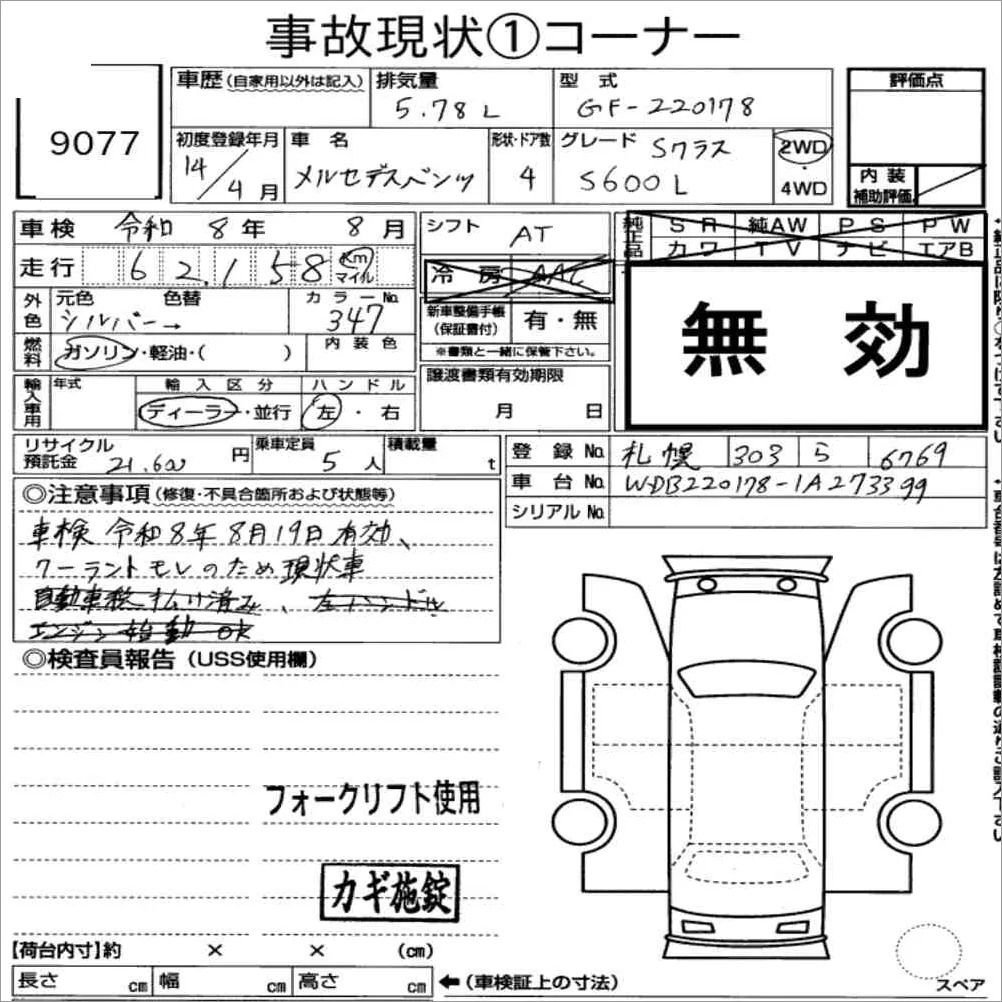 事故現状①コーナー
9077
車歴(自家用以外は記入) 排気量 5.78L 型式 GF-220178 評価点
初度登録年月 14/4月 車名 メルセデスベンツ 形状・ドア数 4 グレード Sクラス S600L 2WD・4WD
内装補助評価
車検 令和8年8月 シフト AT 純正品 SR 純AW PS PW
カワ TV ナビ エアB
走行 62,158 Km マイル 冷房 AAC
外色 元色 シルバー→ 色替 カラーNo. 347
新車整備手帳(保証書付) 有・無
無効
燃料 ガソリン・軽油・( ) 内装色
※書類と一緒に保管下さい。
輸入車用 年式 輸入区分 ハンドル
ディーラー・並行 左・右
譲渡書類有効期限
月 日
リサイクル預託金 21.600円 乗車定員 5人 積載量 t
登録No. 札幌 303 ら 6769
車台No. WDB220178-1A273399
シリアルNo.
◎注意事項(修復・不具合箇所および状態等)
車検 令和8年8月19日有効、
クーラントモレのため現状車
自動車税払い済み、左ハンドル
エンジン始動OK
◎検査員報告(USS使用欄)
フォークリフト使用
カギ施錠
【荷台内寸】約 × × (cm)
長さ cm 幅 cm 高さ cm ←(車検証上の寸法)
スペア